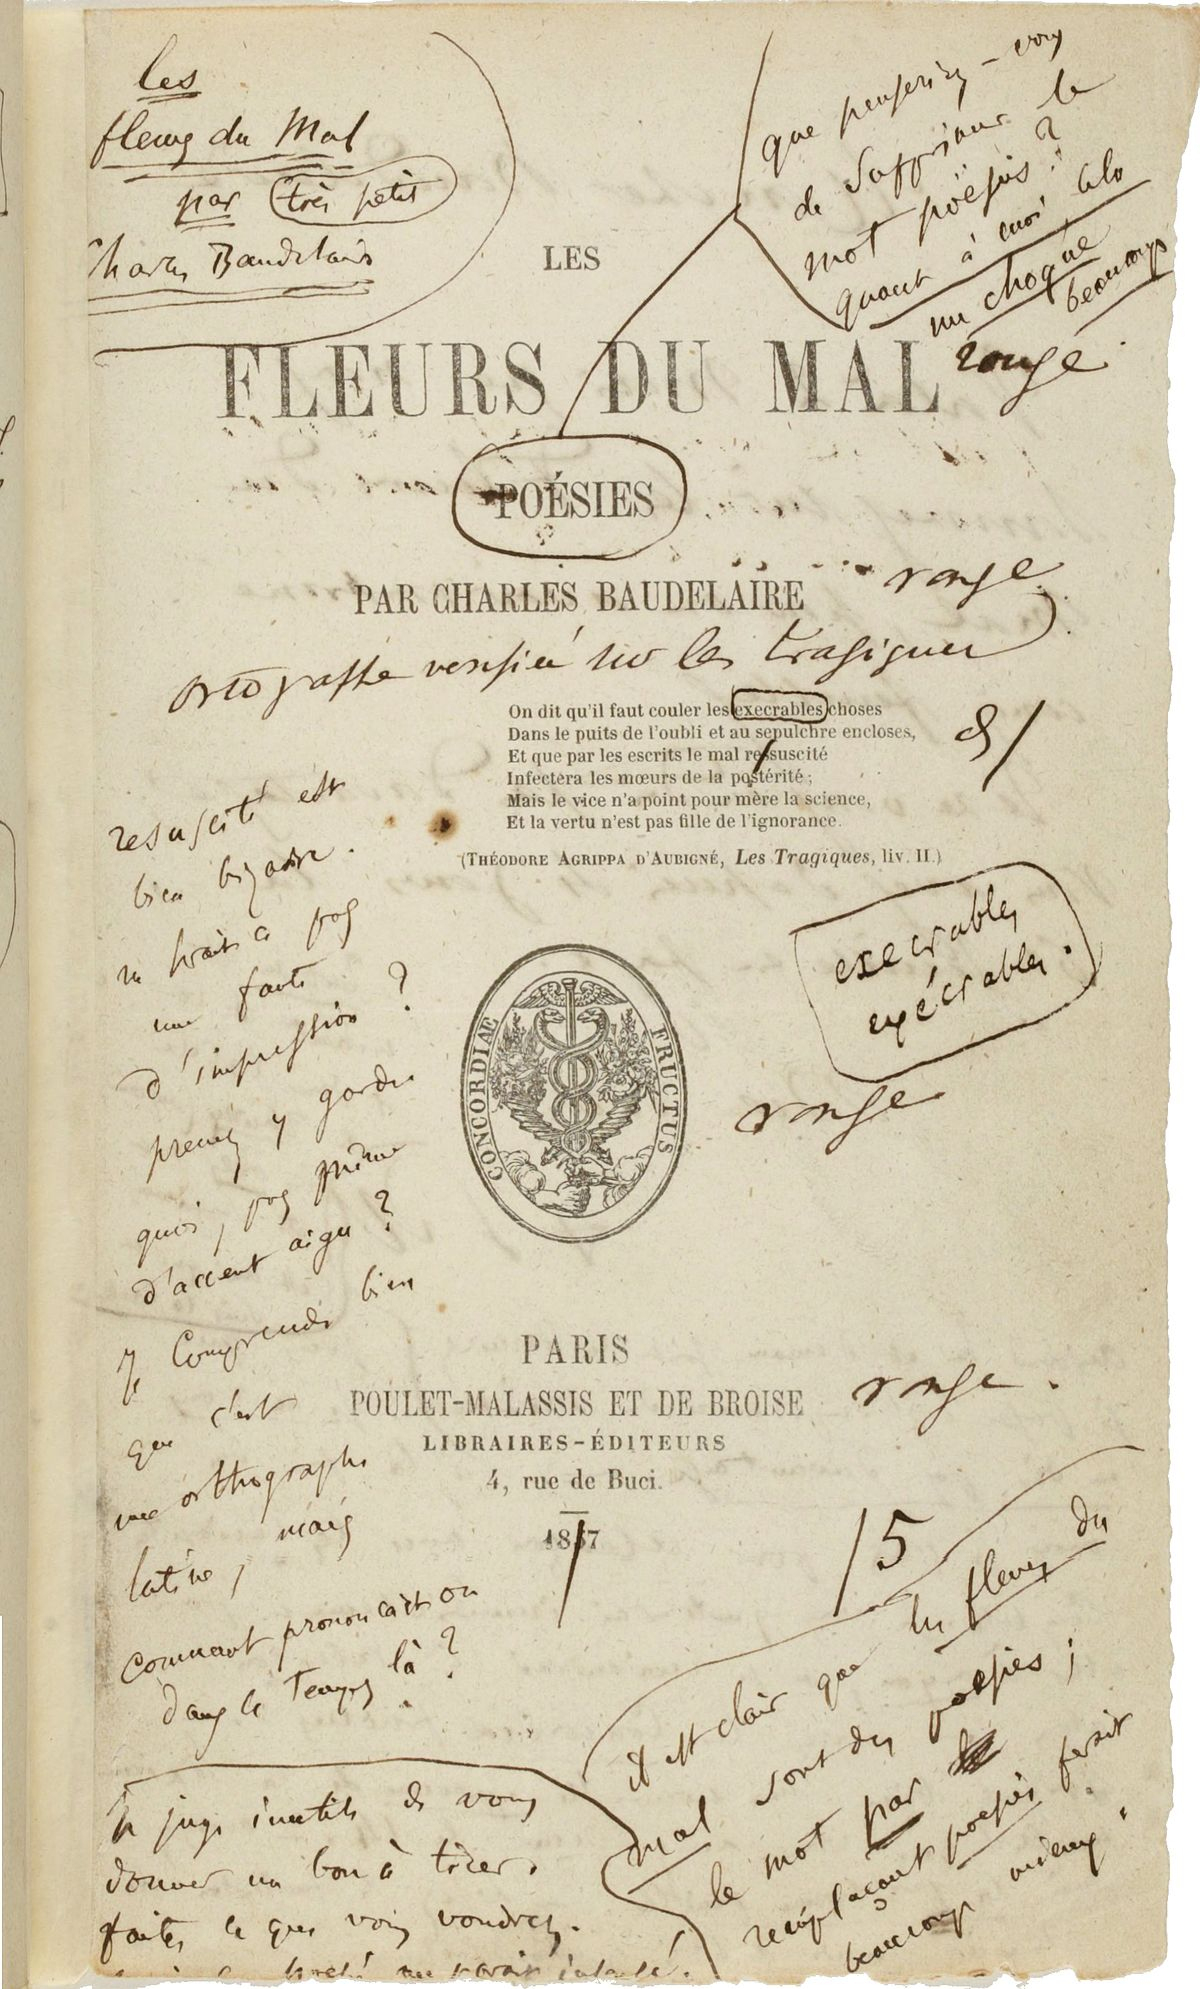 les
fleurs du Mal
par très petit
Charles Baudelaire
que penseriez-vous
de supprimer le
mot poësies ?
quant à moi cela
me choque
beaucoup
LES
FLEURS DU MAL
rouge
POÉSIES
PAR CHARLES BAUDELAIRE
rouge
ortografhe vérifiée sur les tragiques
On dit qu'il faut couler les execrables choses
Dans le puits de l'oubli et au sepulchre encloses,
Et que par les escrits le mal ressuscité
Infectera les mœurs de la postérité ;
Mais le vice n'a point pour mère la science,
Et la vertu n'est pas fille de l'ignorance.
(THÉODORE AGRIPPA D'AUBIGNÉ, Les Tragiques, liv. II.)
resuscité est
bien bizarre.
ne serait-ce pas
une faute
d'impression ?
prenez y garde
quoi, pas même
d'accent aigu ?
Je comprends bien
que c'est
une orthographe
latine, mais
comment prononçait on
dans le temps là ?
execrables
exécrables.
rouge
CONCORDIAE FRUCTUS
PARIS
POULET-MALASSIS ET DE BROISE
rouge.
LIBRAIRES-ÉDITEURS
4, rue de Buci.
1857
/5
il est clair que les fleurs du
mal sont des poësies ;
le mot par
remplaçant poësies ferait
beaucoup mieux.
Je juge inutile de vous
donner un bon à tirer.
faites ce que vous voudrez.